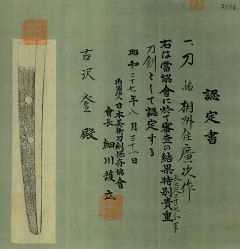 認定書
一、刀 銘 相州住廣次作
右は當協會に於て審査の結果特別貴重
刀剣として認定する
昭和三十七年八月三十一日
財團法人日本美術刀剣保存協會
會長 細川護立
古沢 登 殿